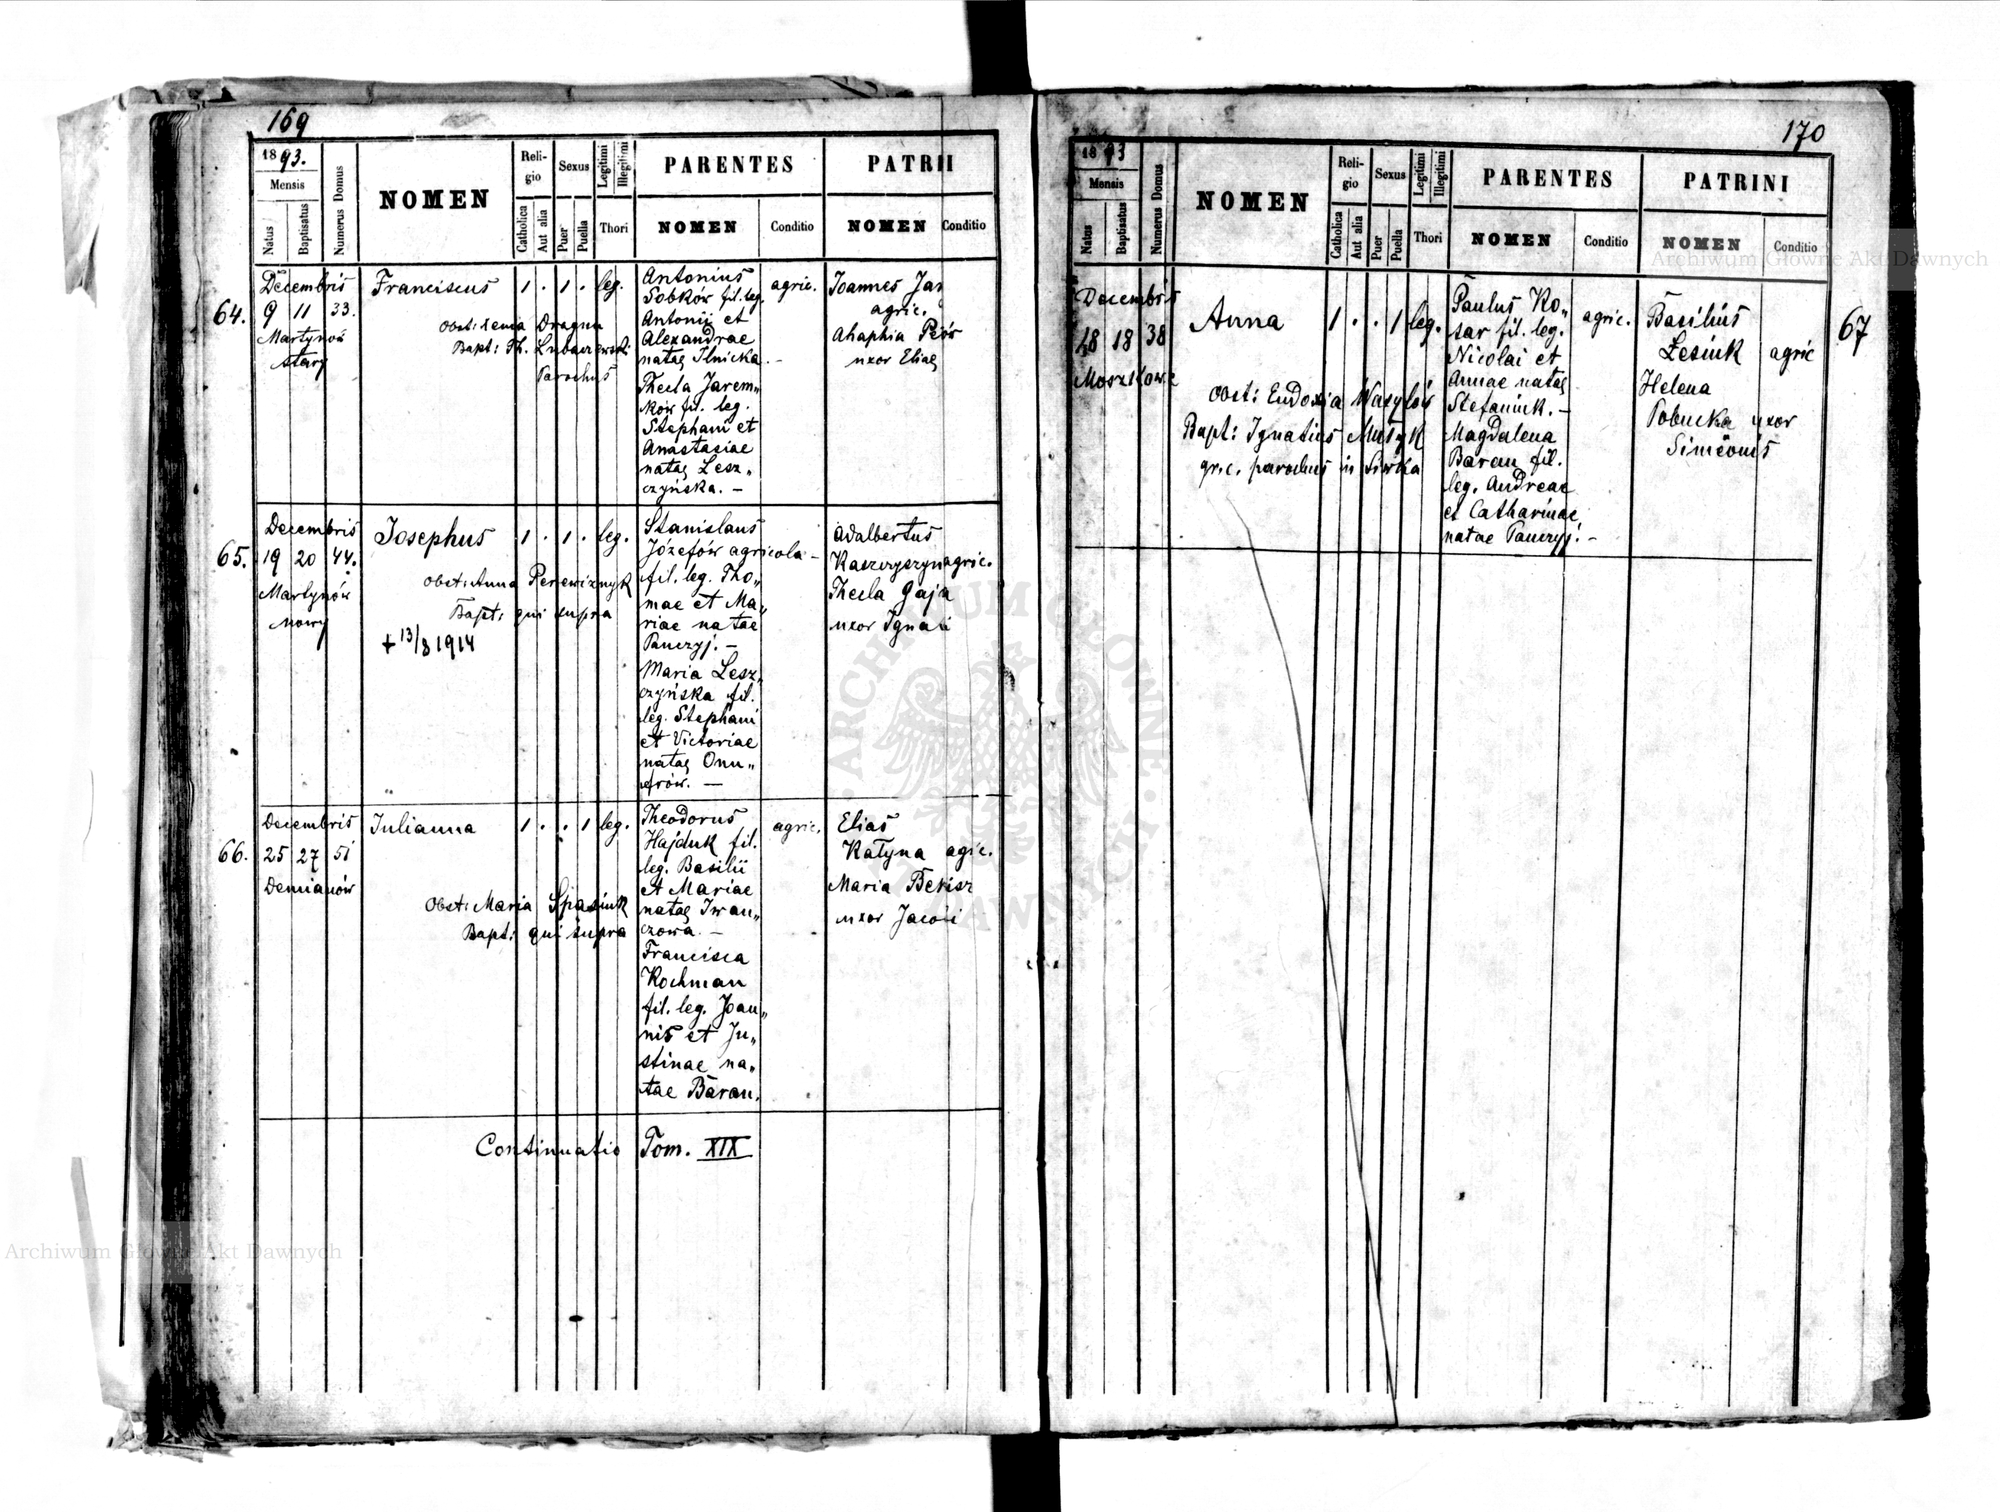 169
1893.
Mensis
Natus
Baptisatus
Numerus Domus
NOMEN
Reli-
gio
Catholica
Aut alia
Sexus
Puer
Puella
Legitimi
Illegitimi
Thori
PARENTES
NOMEN
Conditio
PATRII
NOMEN
Conditio
64.
Decembris
9 11 33.
Martynów
stary
Franciscus
1 . 1 . leg.
Obst: Xenia Dragun
Bapt: Th. Lubaczewski
Parochus
Antonius
Sobków fil. leg.
Antonii et
Alexandrae
natae Ilnicka. –
Thecla Jarem„
ków fil. leg.
Stephani et
Anastasiae
natae Lesz„
czyńska. –
agric.
Joannes Jar
agric.
Ahaphia Piór
uxor Eliae
65.
Decembris
19 20 44.
Martynów
nowy
Josephus
1 . 1 . leg.
Obst: Anna Perewiznyk
Bapt: qui supra
+ 13/8 1914
Stanislaus
Józefów agricola –
fil. leg. Tho„
mae et Ma„
riae natae
Panczyj. –
Maria Lesz„
czyńska fil.
leg. Stephani
et Victoriae
natae Onu„
frów. –
Adalbertus
Kaszczyszyn agric.
Thecla Gaja
uxor Ignatii
66.
Decembris
25 27 51
Demianów
Julianna
1 . . 1 leg.
Obst: Maria Spasiuk
Bapt: qui supra
Theodorus
Hajduk fil.
leg. Basilii
et Mariae
natae Iwan„
czowa. –
Francisca
Kochman
fil. leg. Joan„
nis et Ju„
stinae na„
tae Baran.
agric.
Elias
Katyna agic.
Maria Bekisz
uxor Jacobi
Continuatio Tom. XIX
170
1893
Mensis
Natus
Baptisatus
Numerus Domus
NOMEN
Reli-
gio
Catholica
Aut alia
Sexus
Puer
Puella
Legitimi
Illegitimi
Thori
PARENTES
NOMEN
Conditio
PATRINI
NOMEN
Conditio
67
Decembris
18 18 38
Moszkowce
Anna
1 . . 1 leg.
Obst: Eudoxia Wasylów
Bapt: Ignatius Mulyk
gr.c. parochus in Siwka
Paulus Ko„
sar fil. leg.
Nicolai et
Annae natae
Stefaniuk. –
Magdalena
Baran fil.
leg. Andreae
et Catharinae
natae Panczyj. –
agric.
Basilius
Łesiuk agric
Helena
Pobucka uxor
Simeonis
ARCHIWUM GŁÓWNE AKT DAWNYCH
Archiwum Główne Akt Dawnych
Archiwum Główne Akt Dawnych